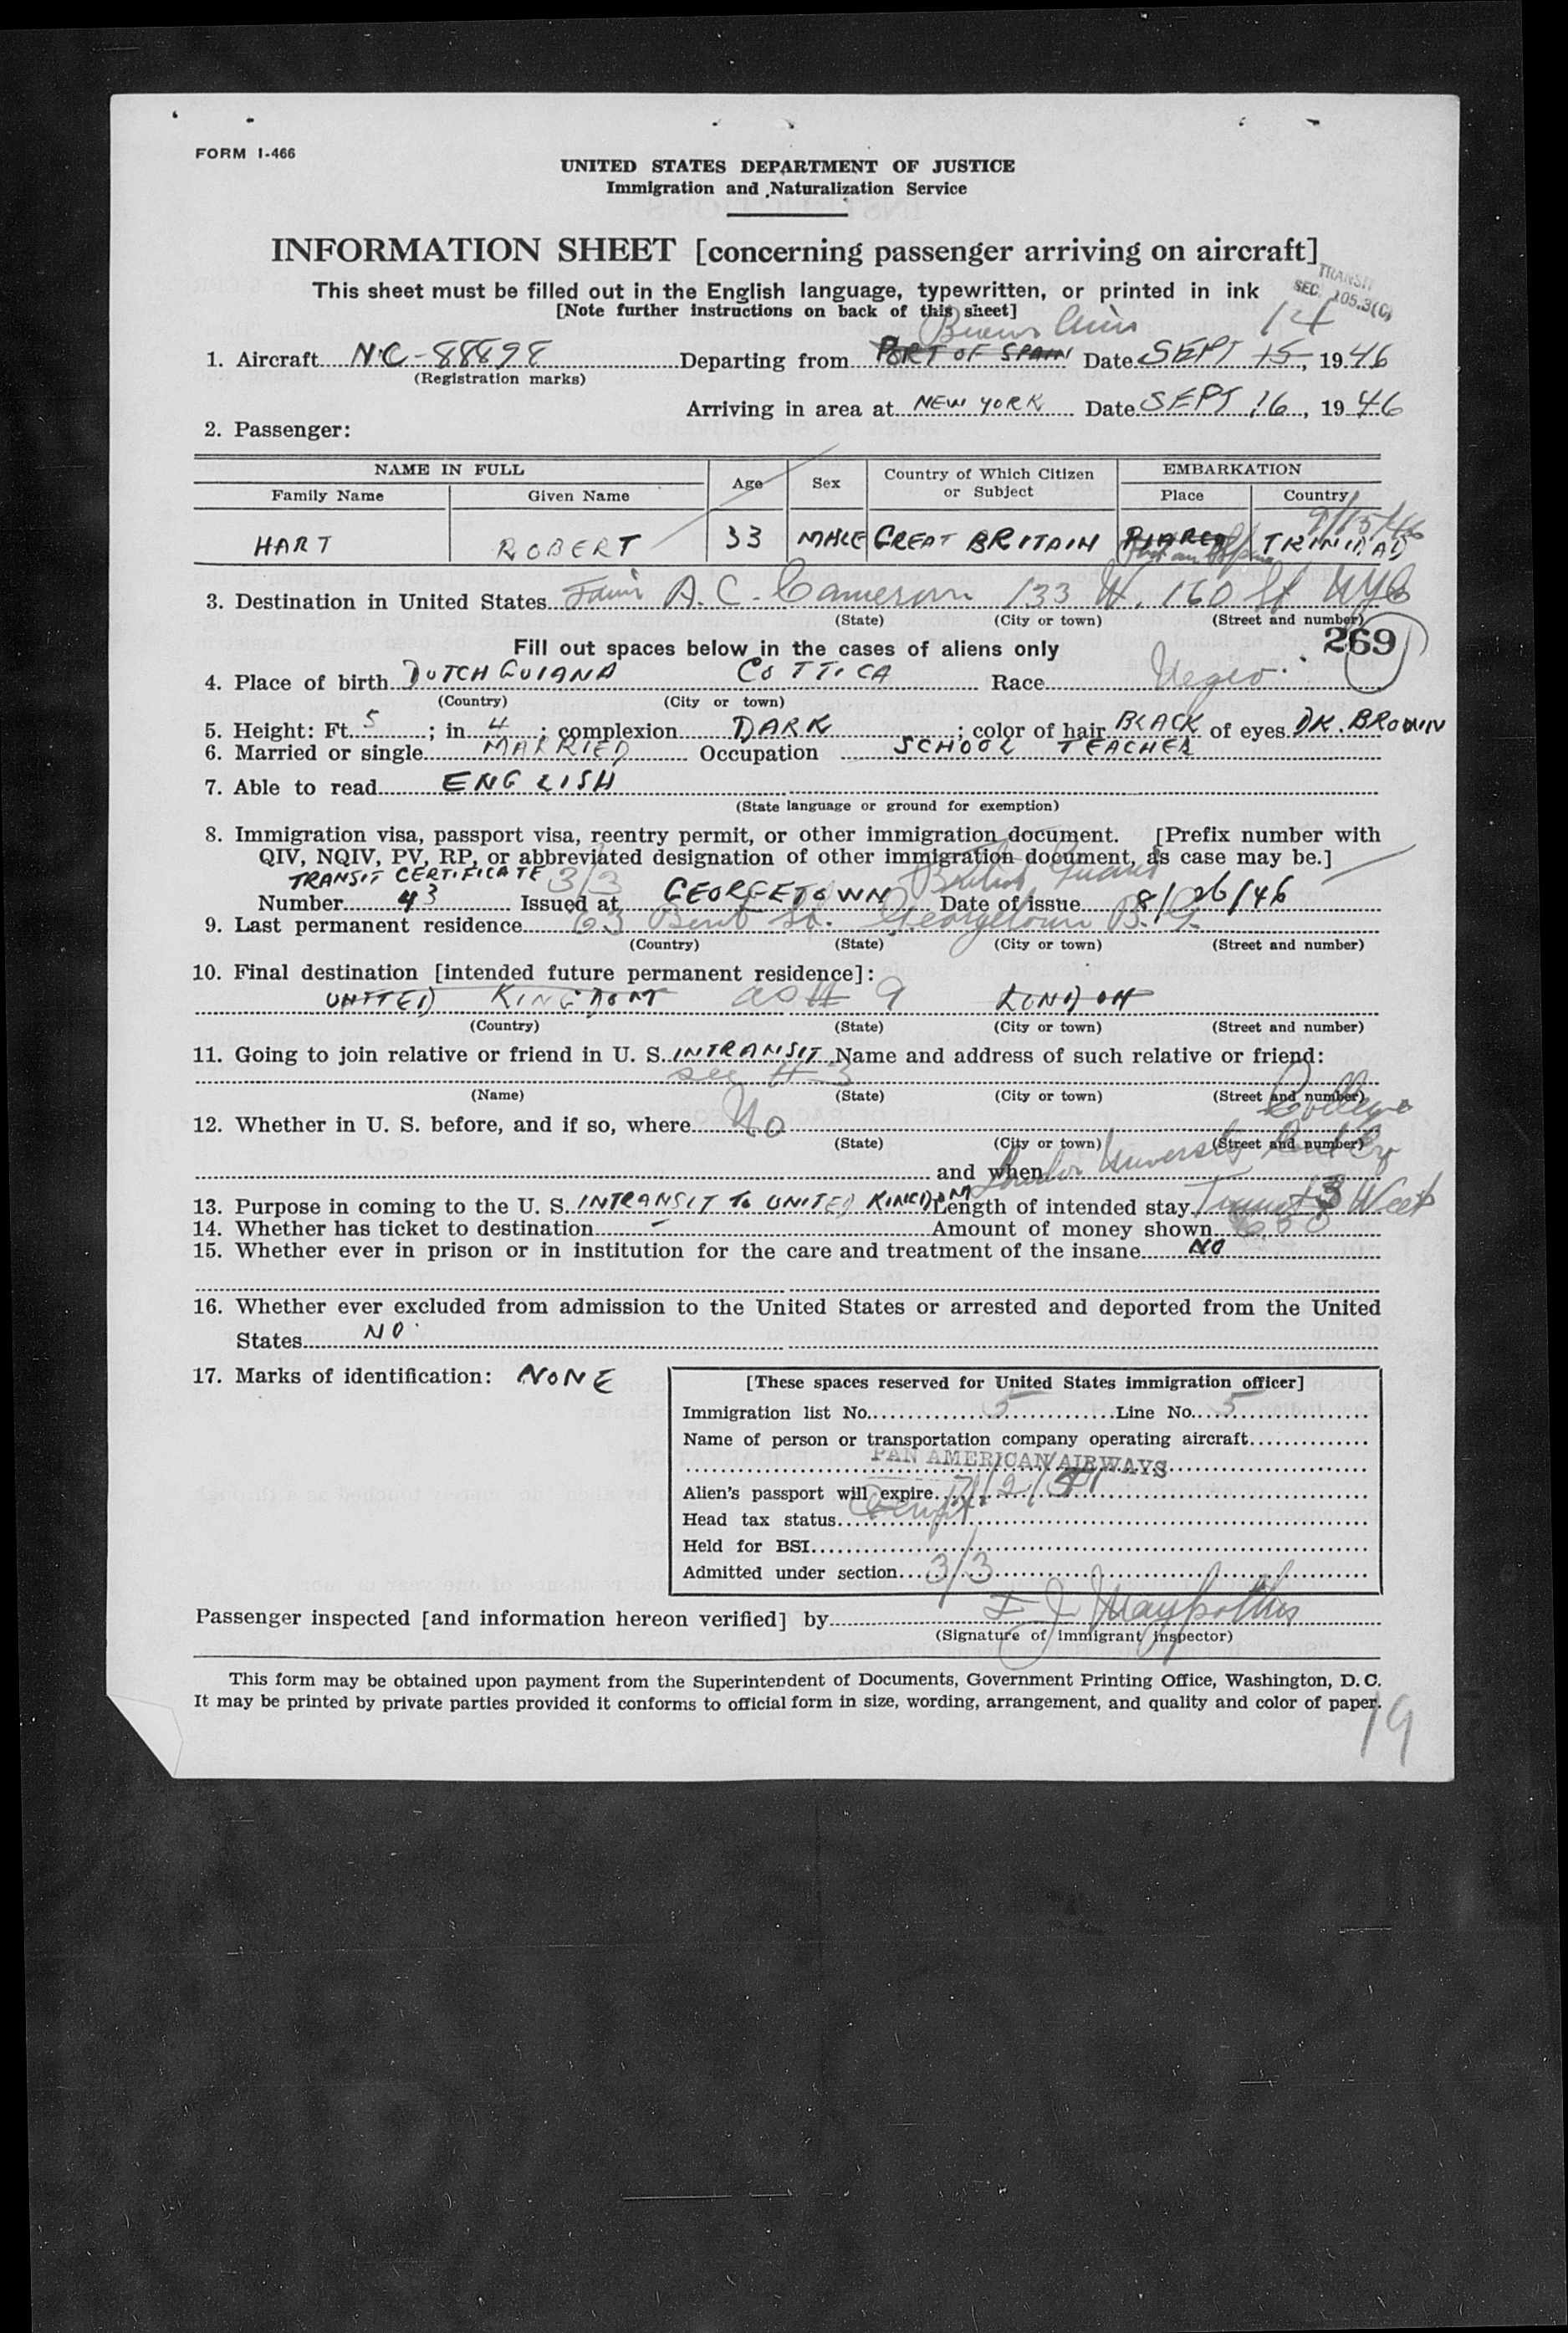 FORM I-466
UNITED STATES DEPARTMENT OF JUSTICE
Immigration and Naturalization Service
INFORMATION SHEET [concerning passenger arriving on aircraft]
TRANSIT
SEC. 105.3(C)
This sheet must be filled out in the English language, typewritten, or printed in ink
[Note further instructions on back of this sheet]
Buenos Aires 14
1. Aircraft NC-88898 Departing from PORT OF SPAIN Date SEPT 15, 1946
(Registration marks)
Arriving in area at NEW YORK Date SEPT 16, 1946
2. Passenger:
NAME IN FULL Age Sex Country of Which Citizen or Subject EMBARKATION
Family Name Given Name Place Country
9/15/46
HART ROBERT 33 MALE GREAT BRITAIN PIARCO TRINIDAD
Port au Spain
3. Destination in United States A. C. Cameron 133 W. 160 St NYC
(State) (City or town) (Street and number)
269
Fill out spaces below in the cases of aliens only
4. Place of birth DUTCH GUIANA COTTICA Race Negro
(Country) (City or town)
5. Height: Ft. 5; in 4; complexion DARK; color of hair BLACK of eyes DK. BROWN
6. Married or single MARRIED Occupation SCHOOL TEACHER
7. Able to read ENGLISH
(State language or ground for exemption)
8. Immigration visa, passport visa, reentry permit, or other immigration document. [Prefix number with
QIV, NQIV, PV, RP, or abbreviated designation of other immigration document, as case may be.]
TRANSIT CERTIFICATE 3/3 British Guiana
Number 43 Issued at GEORGETOWN Date of issue 8/26/46
9. Last permanent residence 63 Bent St. Georgetown B. G.
(Country) (State) (City or town) (Street and number)
10. Final destination [intended future permanent residence]:
UNITED KINGDOM as # 9 LONDON
(Country) (State) (City or town) (Street and number)
11. Going to join relative or friend in U. S. INTRANSIT Name and address of such relative or friend:
see # 3
(Name) (State) (City or town) (Street and number)
College
12. Whether in U. S. before, and if so, where No
(State) (City or town) (Street and number)
and when London University
13. Purpose in coming to the U. S. INTRANSIT TO UNITED KINGDOM Length of intended stay 3 Weeks
14. Whether has ticket to destination - Amount of money shown
15. Whether ever in prison or in institution for the care and treatment of the insane NO
16. Whether ever excluded from admission to the United States or arrested and deported from the United
States NO
17. Marks of identification: NONE
[These spaces reserved for United States immigration officer]
Immigration list No. 5 Line No. 5
Name of person or transportation company operating aircraft
PAN AMERICAN AIRWAYS
Alien's passport will expire 7/2/51
Head tax status Exempt
Held for BSI
Admitted under section 3/3
Passenger inspected [and information hereon verified] by
(Signature of immigrant inspector)
This form may be obtained upon payment from the Superintendent of Documents, Government Printing Office, Washington, D. C.
It may be printed by private parties provided it conforms to official form in size, wording, arrangement, and quality and color of paper.
19